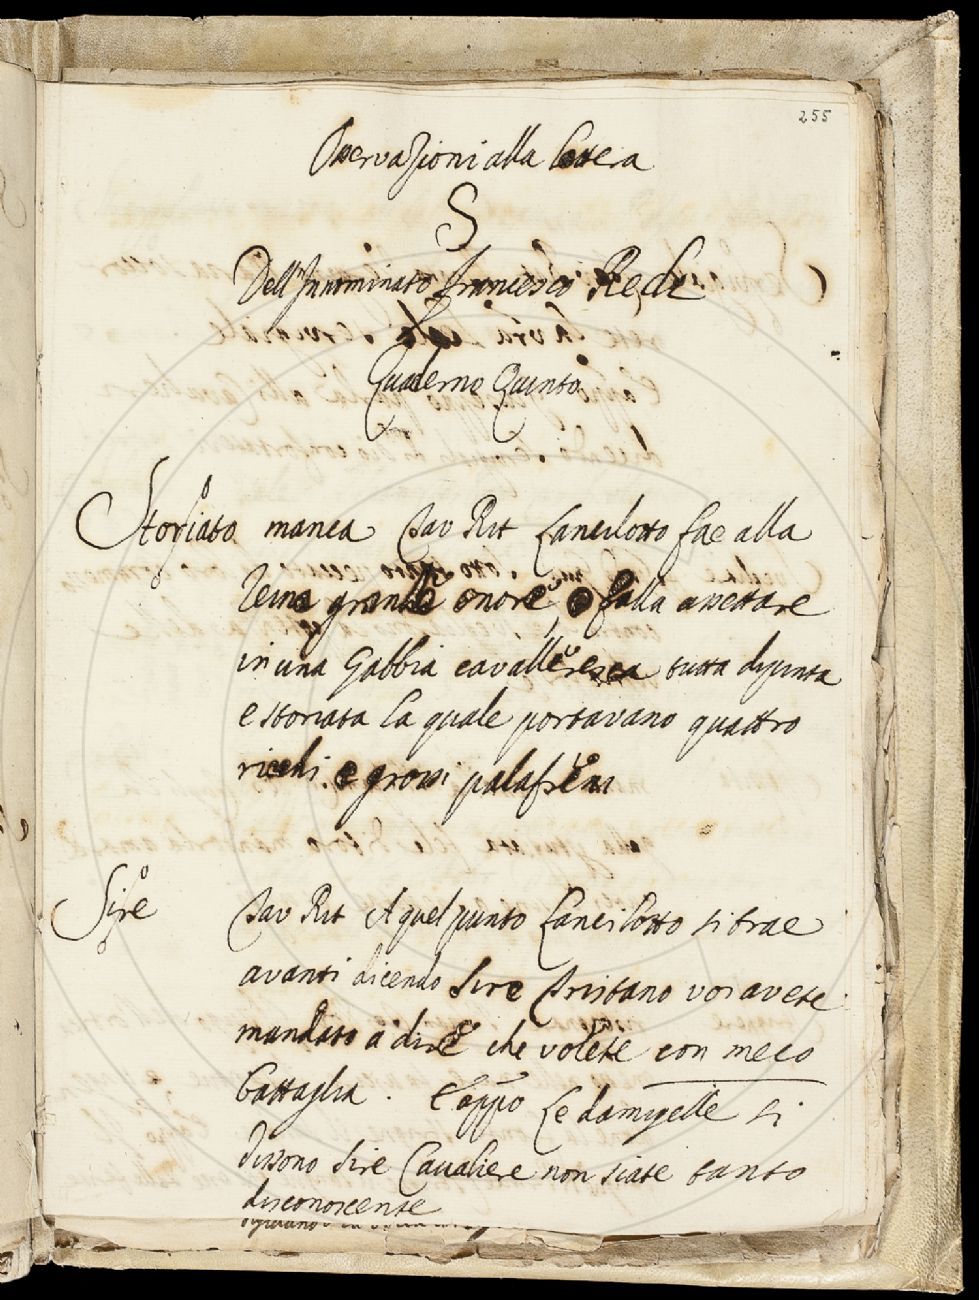 255
Osservazioni alla lettera
S
Dell'Innominato Francesco Redi
Quaderno Quinto
Storiato manca Tav Rit Lancilotto fae alla
Reina grande onore, e falla assettare
in una Gabbia cavalleresca tutta dipinta
e storiata la quale portavano quattro
ricchi e grossi palafreni
Sire Tav Rit A quel punto Lancilotto si trae
avanti dicendo Sire Tristano voi avete
mandato a dire che volete con meco
battaglia. E appo Le damigelle si
dissono Sire Cavaliere non siate tanto
disconoscente